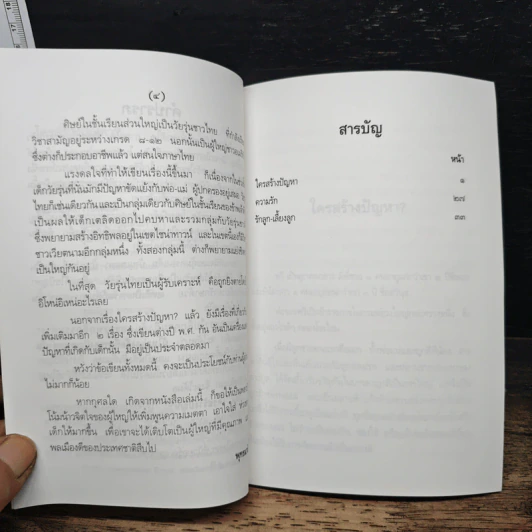 (๔)
ศิษย์ในชั้นเรียนส่วนใหญ่เป็นวัยรุ่นชาวไทย ที่กำลังเรียน
วิชาสามัญอยู่ระหว่างเกรด ๘-๑๒ นอกนั้นเป็นผู้ใหญ่ชาว
ซึ่งต่างก็ประกอบอาชีพแล้ว แต่สนใจภาษาไทย
แรงดลใจที่ทำให้เขียนเรื่องนี้ขึ้นมา ก็เนื่องจากใน
เด็กวัยรุ่นที่นั่นมักมีปัญหาขัดแย้งกับพ่อ-แม่ ผู้ปกครองอยู่เสมอ
ไทยก็เช่นเดียวกันและเป็นกลุ่มเดียวกับศิษย์ในชั้นเรียนของข้าพเจ้า
เป็นผลให้เด็กเตลิดออกไปคบหาและรวมกลุ่มกับวัยรุ่น
ซึ่งพยายามสร้างอิทธิพลอยู่ในเขตไชน่าทาวน์ และในเขตนี้เอง
ชาวเวียตนามอีกกลุ่มหนึ่ง ทั้งสองกลุ่มนี้ ต่างก็พยายาม
เป็นใหญ่กันอยู่
ในที่สุด วัยรุ่นไทยเป็นผู้รับเคราะห์ คือถูกยิงตาย
อีโหน่อีเหน่อะไรเลย
นอกจากเรื่องใครสร้างปัญหา? แล้ว ยังมีเรื่องที่
เพิ่มเติมมาอีก ๒ เรื่อง ซึ่งเขียนต่างปี พ.ศ. กัน อันเป็นเครื่อง
ปัญหาที่เกิดกับเด็กนั้น มีอยู่เป็นประจำตลอดมา
หวังว่าข้อเขียนทั้งหมดนี้ คงจะเป็นประโยชน์กับท่านผู้
ไม่มากก็น้อย
หากกุศลใด เกิดจากหนังสือเล่มนี้ ก็ขอให้เป็น
โน้มน้าวจิตใจของผู้ใหญ่ให้เพิ่มพูนความเมตตา เอาใจใส่
เด็กให้มากขึ้น เพื่อเขาจะได้เติบโตเป็นผู้ใหญ่ที่มีคุณภาพ
พลเมืองดีของประเทศชาติสืบไป
สารบัญ
หน้า
ใครสร้างปัญหา ๑
ความรัก ๒๗
รักลูก-เลี้ยงลูก ๓๓